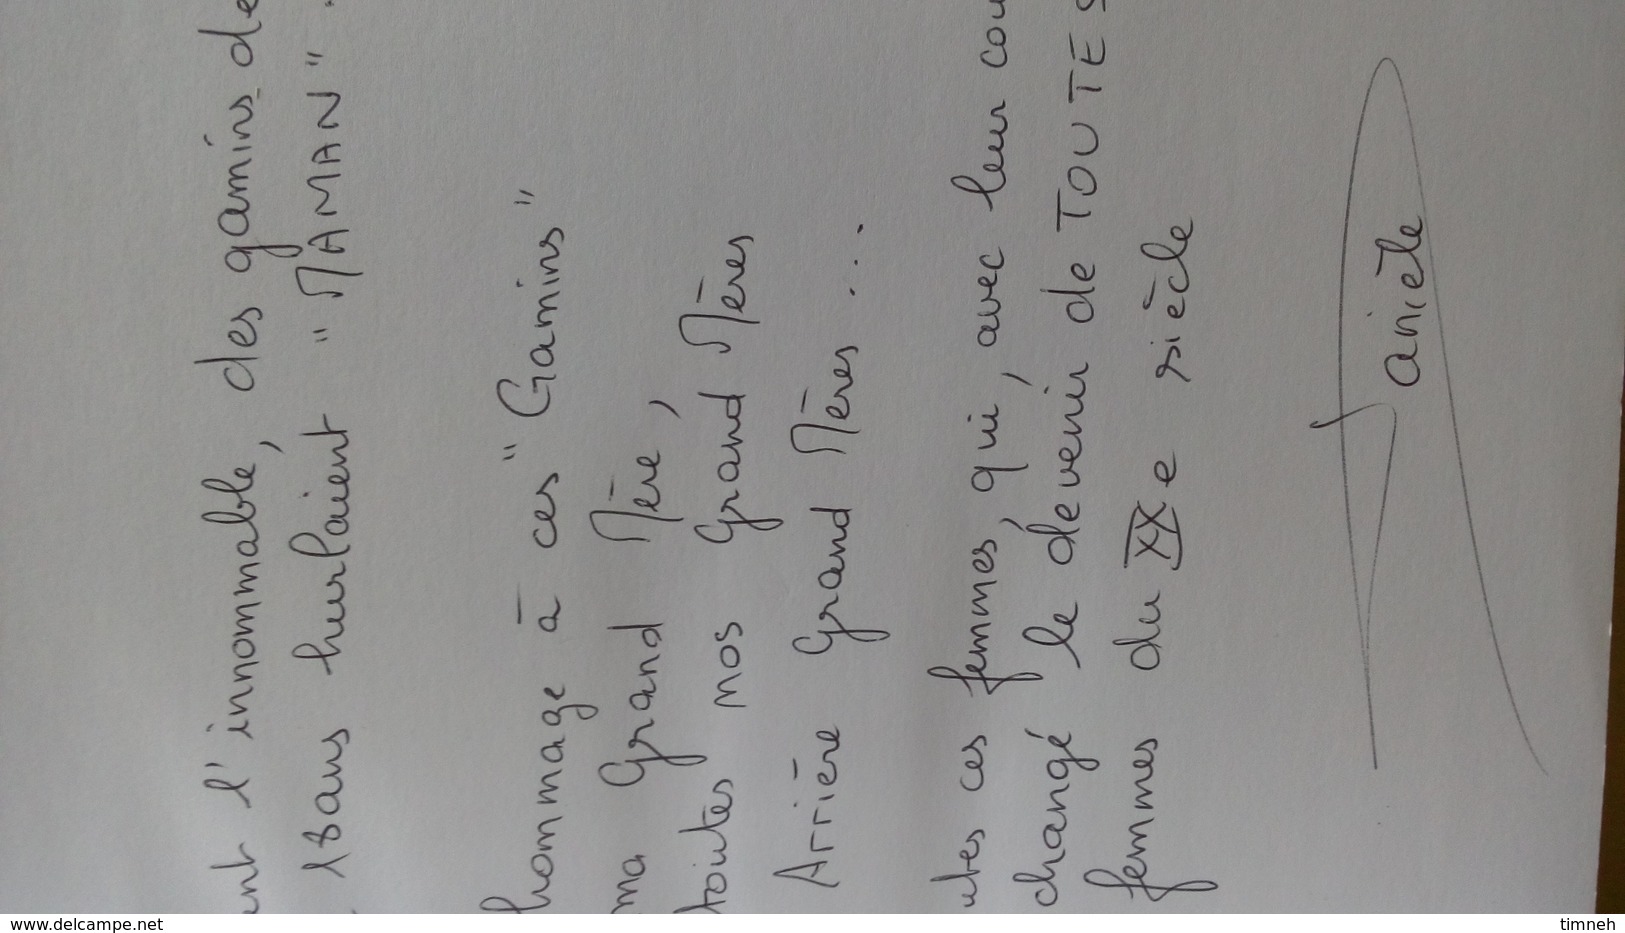 l'innommable, des gamins de
18ans hurlaient " MAMAN ".
hommage à ces " Gamins "
ma Grand Mère,
toutes nos Grand Mères
Arrière Grand Mères...
ces femmes, qui, avec leur
changé le devenir de TOUTES
femmes du XXe siècle
Danièle
www.delcampe.net
timneh